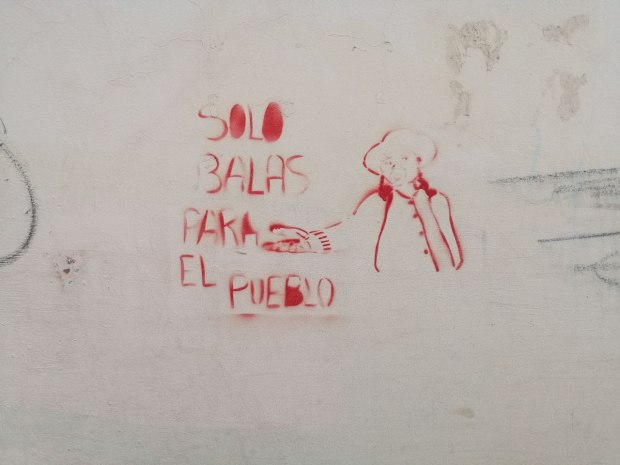 SOLO
BALAS
PARA
EL PUEBLO